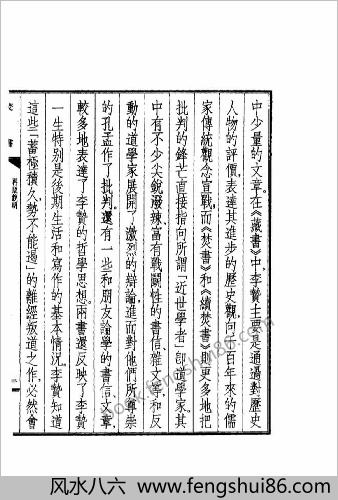 中少量的文章。在《藏書》中，李贄主要是通過對歷史
人物的評價，表達其進步的歷史觀，向千百年來的儒
家傳統觀念宣戰，而《焚書》和《續焚書》則更多地把
批判的鋒芒直接指向所謂「近世學者」卽道學家。其
中有不少尖銳潑辣、富有戰鬪性的書信、雜文等，和反
動的道學家展開了激烈的辯論，進而對他們所尊崇
的孔孟作了批判。還有一些和朋友論學的書信文章，
較多地表達了李贄的哲學思想。兩書還反映了李贄
一生特別是後期生活和寫作的基本情況。李贄知道
這些「蓄極積久，勢不能遏」的離經叛道之作，必然會
焚書
book.fengshui86.com
风水八六 www.fengshui86.com